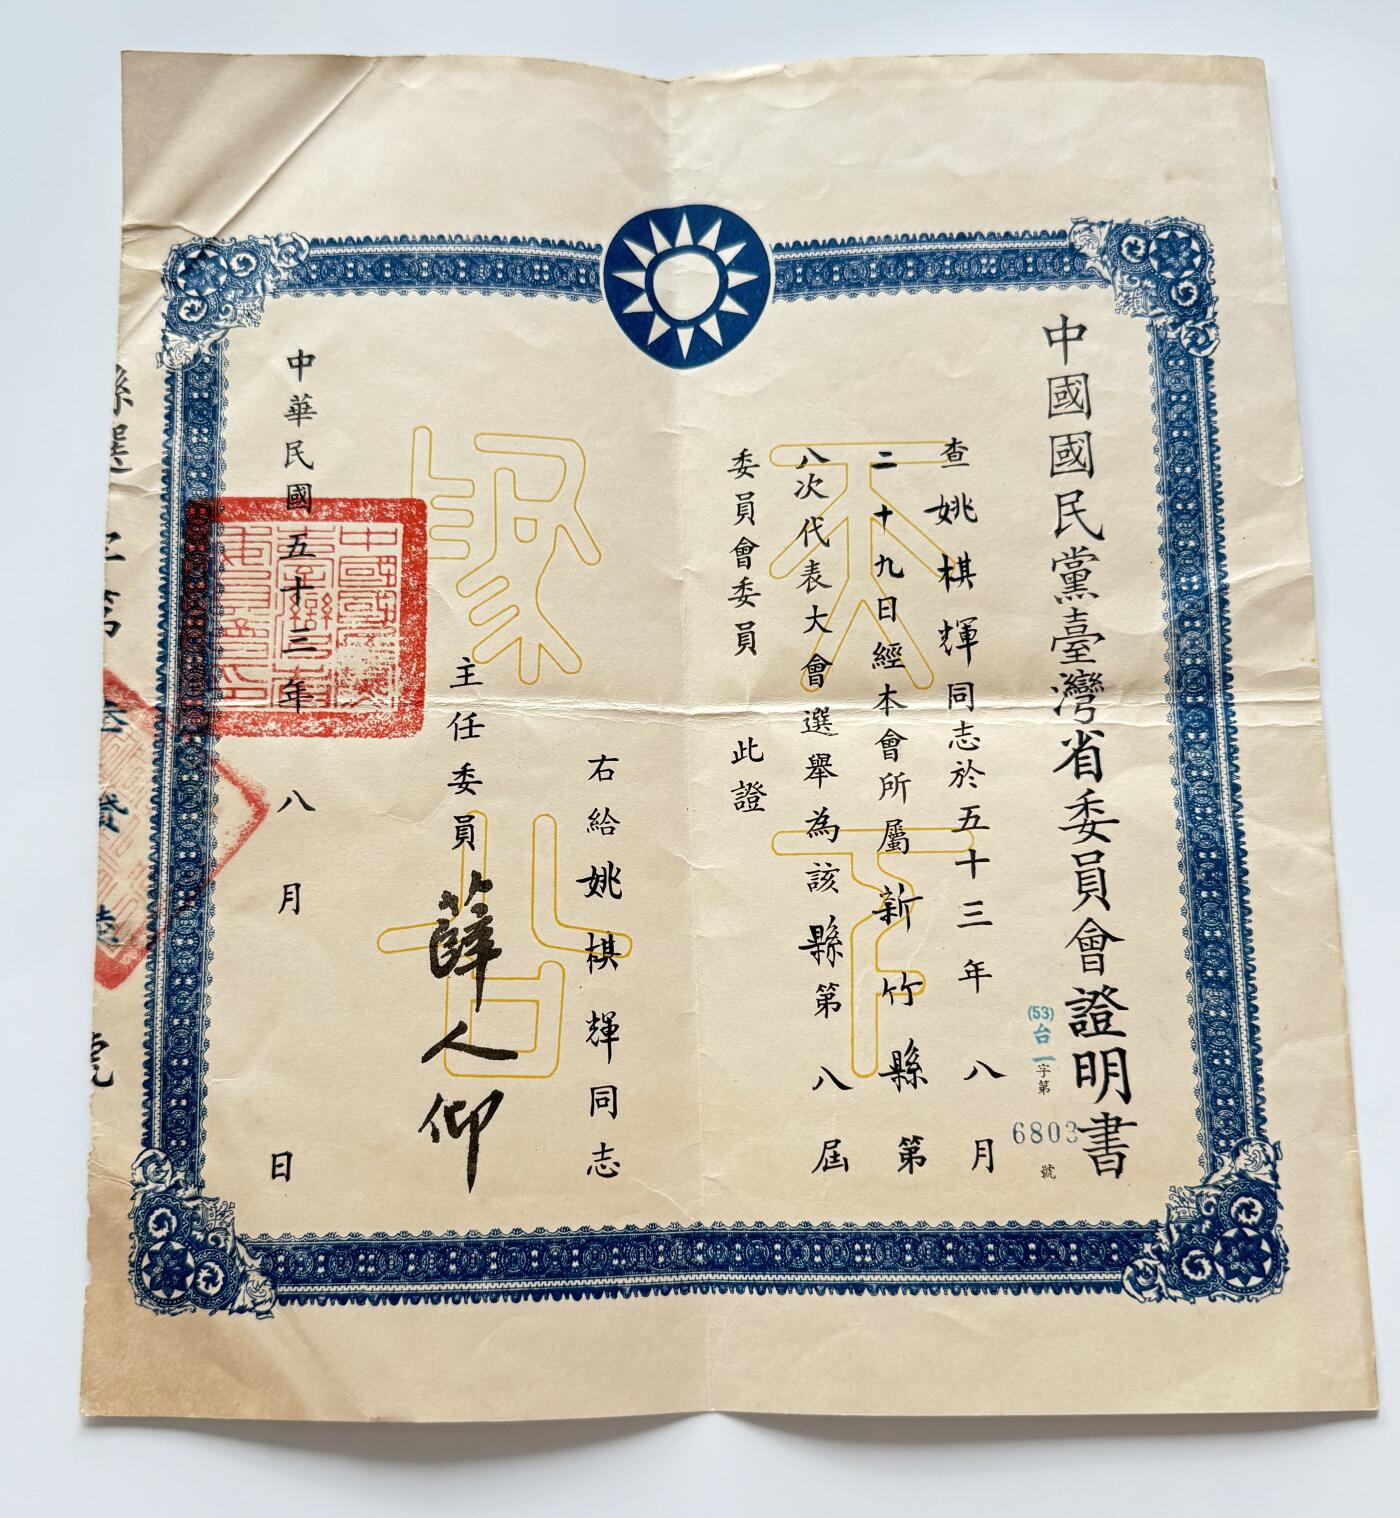 中國國民黨臺灣省委員會證明書
(53)台一字第6803號
查姚棋輝同志於五十三年八月
二十九日經本會所屬新竹縣第
八次代表大會選舉為該縣第八屆
委員會委員 此證
右給姚棋輝同志
主任委員 薛人仰
中華民國五十三年八月 日
天下為公
縣選字第
號